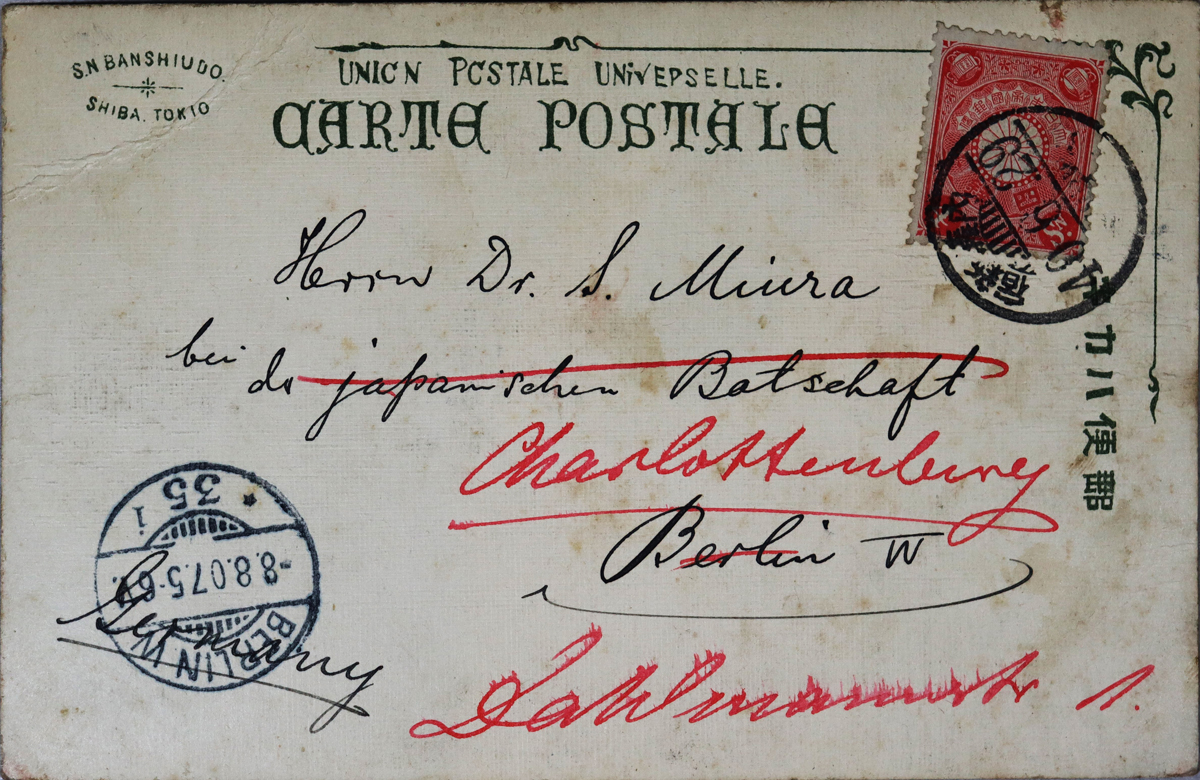 S.N BANSHIUDO.
SHIBA. TOKIO
UNION POSTALE UNIVERSELLE.
CARTE POSTALE
Herrn Dr. S. Miura
bei
der japanischen Botschaft
Charlottenburg
Berlin W
Dahlmannstr 1.
Germany
郵便ハカキ
40 5 29
BERLIN W.
-8.8.07.5-6N.
* 35 i